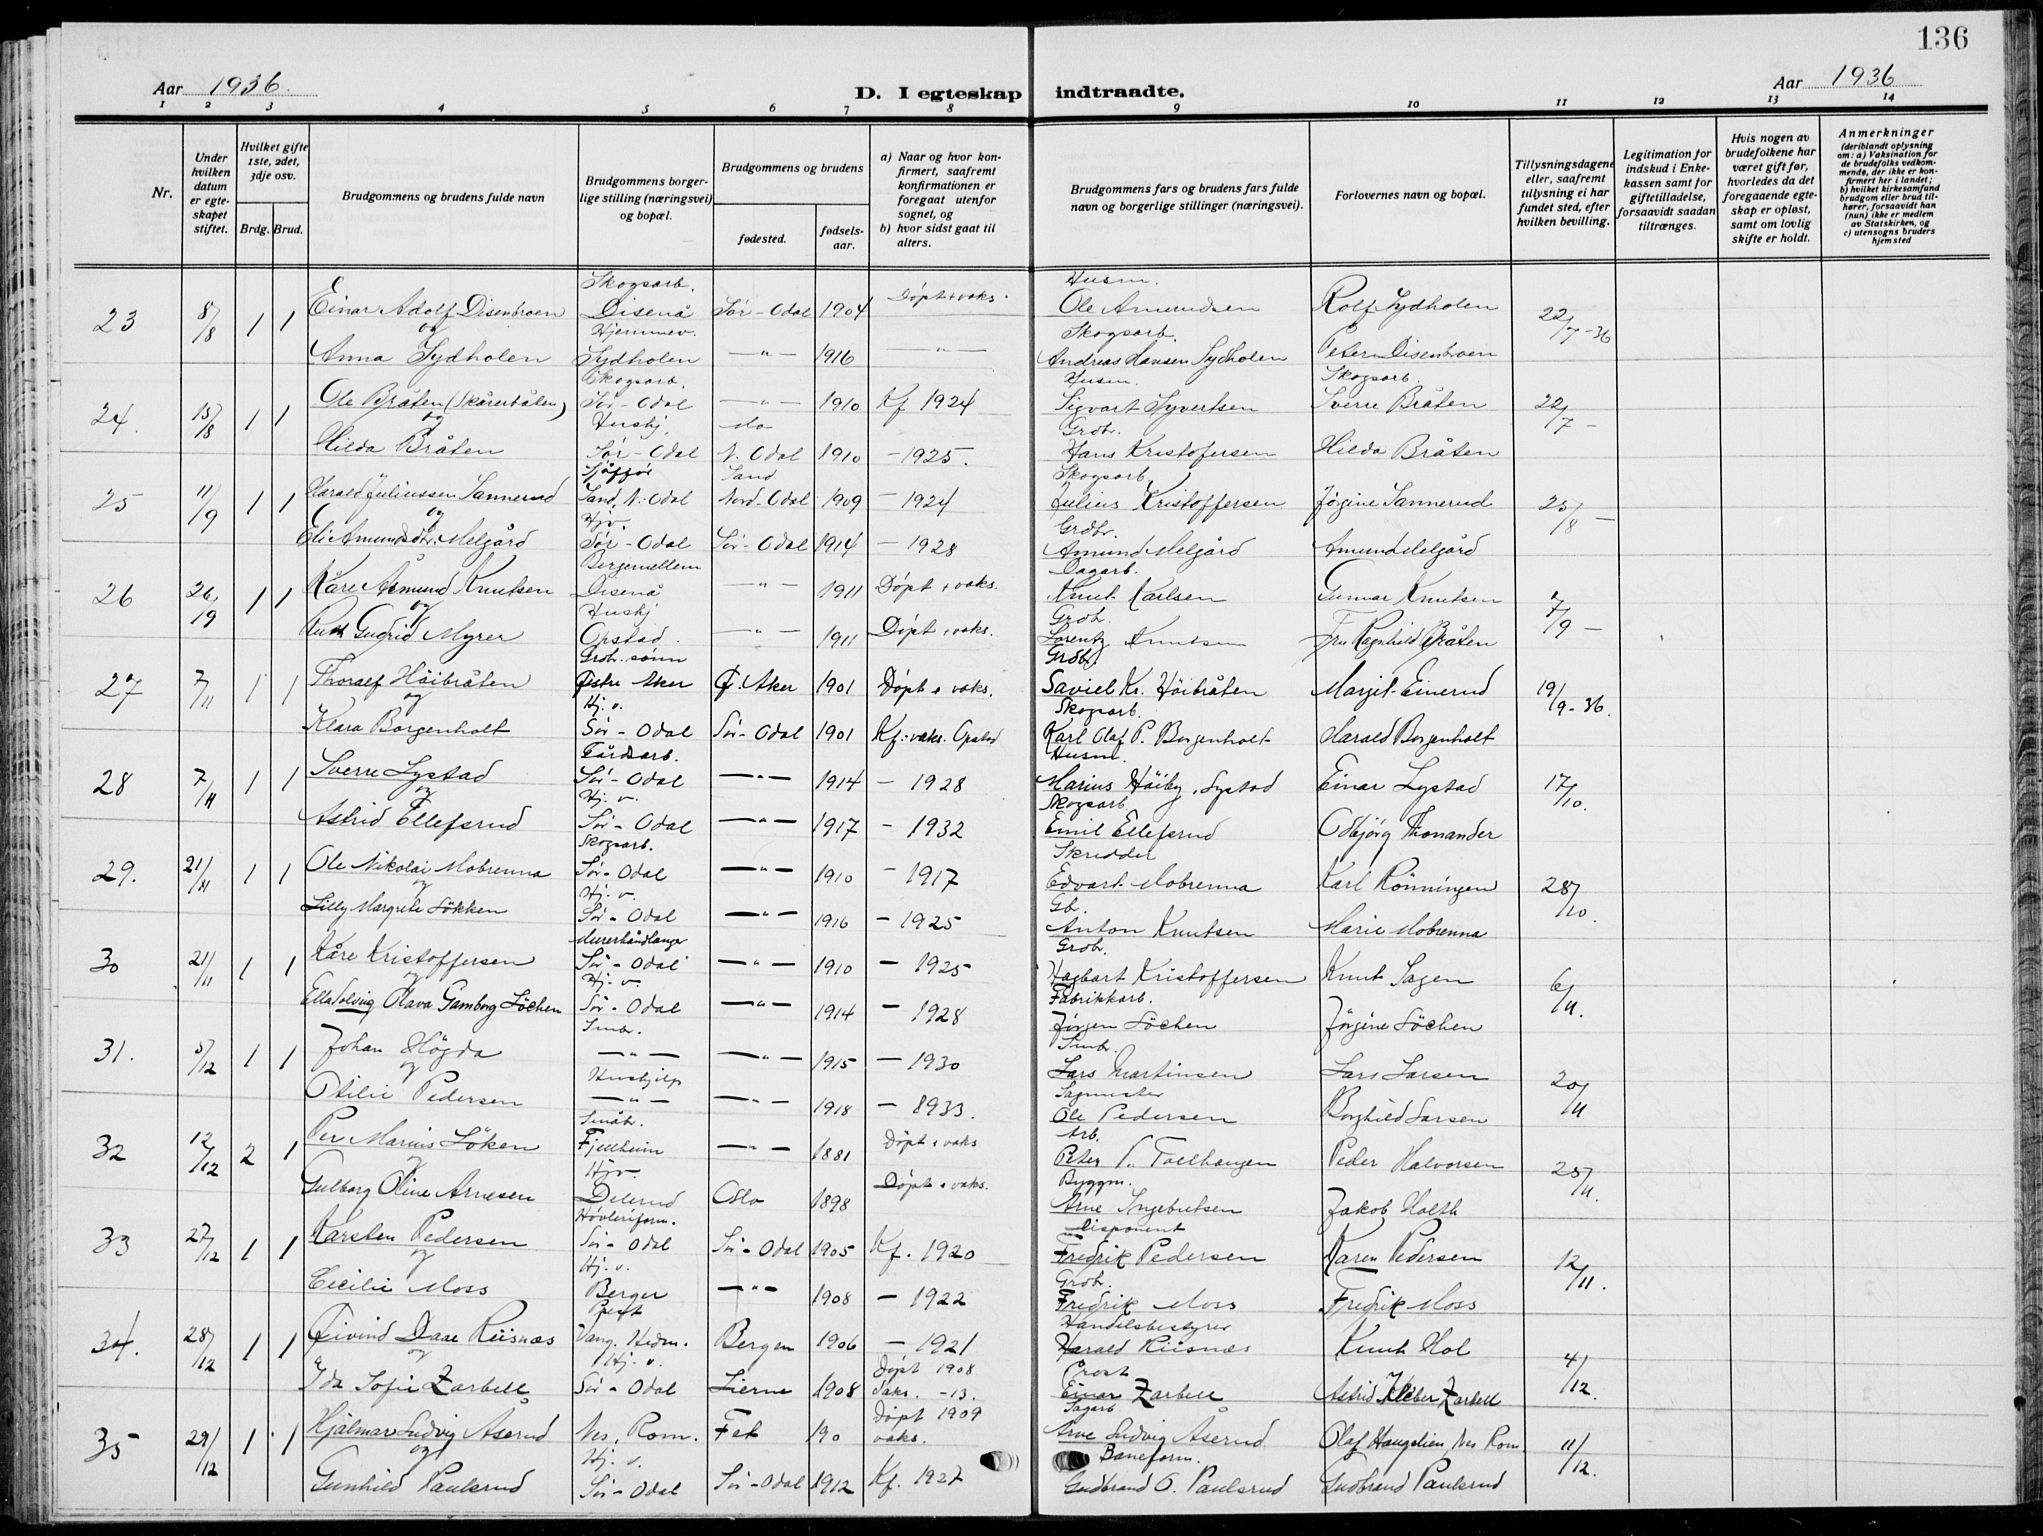 136
Aar 1936.
D. I egteskap indtraadte.
Aar 1936
1 2 3 4 5 6 7 8 9 10 11 12 13 14
Nr.
Under hvilken datum er egteskapet stiftet.
Hvilket gifte 1ste, 2det, 3dje osv.
Brdg. Brud.
Brudgommens og brudens fulde navn
Brudgommens borgerlige stilling (næringsvei) og bopæl.
Brudgommens og brudens
fødested.
fødselsaar.
a) Naar og hvor konfirmert, saafremt konfirmationen er foregaat utenfor sognet, og
b) hvor sidst gaat til alters.
Brudgommens fars og brudens fars fulde navn og borgerlige stillinger (næringsvei).
Forlovernes navn og bopæl.
Tillysningsdagene eller, saafremt tillysning ei har fundet sted, efter hvilken bevilling.
Legitimation for indskud i Enkekassen samt for giftetilladelse, forsaavidt saadan tiltrænges.
Hvis nogen av brudefolkene har været gift før, hvorledes da det foregaaende egteskap er opløst, samt om lovlig skifte er holdt.
Anmerkninger (deriblandt oplysning om: a) Vaksination for de brudefolks vedkommende, der ikke er konfirmert her i landet; b) hvilket kirkesamfund brudgom eller brud tilhører, forsaavidt han (hun) ikke er medlem av Statskirken, og c) utensogns bruders hjemsted
Skogsarb. Husm.
23 8/8 1 1 Einar Adolf Disenbroen Disenå Sør-Odal 1904 Døpt + vaks. Ole Amundsen Rolf Sydholen 22/7-36
og Hjemmev. Skogsarb.
Anna Sydholen Sydholen —"— 1916 —"— Andreas Hansen Sydholen Peter Disenbroen
Skogsarb. Husm. Skogsarb.
24. 15/8 1 1 Ole Bråten (Skårerbåten) Sør-Odal —"— 1910 Kf 1924 Sigvart Syvertsen Sverre Bråten 22/7 -
og Hushj. Mo Grdbr.
Hilda Bråten Sør-Odal N. Odal 1910 - 1925. Hans Kristofersen Hilda Bråten
Sjåfør Sand Skogsarb.
25 11/9 1 1 Harald Juliussen Sannerud Sand, N. Odal Nord-Odal 1909 - 1924 Julius Kristoffersen Jøgine Sannerud 25/8 -
og Hjv. Grdbr.
Eli Amundsdtr. Melgård Sør-Odal Sør-Odal 1914 - 1928 Amund Melgård Amund Melgård
Bergemellem Dagarb.
26 26/9 1 1 Kåre Åsmund Knutsen Disenå —"— 1911 Døpt + vaks. Knut Karlsen Gunnar Knutsen 7/9 -
og Hushj Grdb.
Rut Gudrid Myrer Opstad. —"— 1911 Døpt + vaks. Lorentz Knutsen Fru Ragnhild Bråten
Grdb. sønn Grdb.
27 7/11 1 1 Thoralf Høibråten Østre Aker Ø. Aker 1901 Døpt + vaks. Saviel Kr. Høibråten Margit Einerud 19/9-36.
og Hj. v. Skogsarb.
Klara Borgenholt Sør-Odal Sør-Odal 1901 Kf. + vaks. Opstad Karl Olaf P. Borgenholt Harald Borgenholt
Gårdsarb. Husm.
28 7/11 1 1 Sverre Lystad Sør-Odal —"— 1914 - 1928 Marius Høiby, Lystad Einar Lystad 17/10.
og Hj. v. Skogsarb
Astrid Ellefsrud Sør-Odal —"— 1917 - 1932 Emil Ellefsrud Odbjørg Thonander
Skogsarb. Skredder
29. 21/11 1 1 Ole Nikolai Mobrenna Sør-Odal —"— 1910 - 1917 Edvart Mobrenna Karl Rönningen 28/10.
og Hj. v. Gb.
Lilly Margrete Løkken Sør-Odal —"— 1916 - 1925 Anton Knutsen Marie Mobrenna
Murerhåndlanger Grdb.
30 21/11 1 1 Kåre Kristoffersen Sør-Odal —"— 1910 - 1925 Hagbart Kristoffersen Knut Sagen 6/11.
og Hj. v. Fabrikkarb.
Ella Solveig Olava Gamborg Löchen Sør-Odal —"— 1914 - 1928 Jørgen Löchen Jørgine Löchen
Smbr. Smbr.
31. 5/12 1 1 Johan Høgda —"— —"— 1915 - 1930 Lars Martinsen Lars Larsen 20/11
og Hushjelp Sagmester
Otilie Pedersen —"— —"— 1918 - 8933. Ole Pedersen Borghild Larsen
Småbr. Arb.
32 12/12 2 1 Per Marius Löken Fjellheim —"— 1881 Døpt + vaks Peter Tallhaugen Peder Halvorsen 25/11.
og Hjv. Byggm.
Gulborg Oline Arnesen Delerud Oslo 1898 Døpt + vaks. Arne Ingebretsen Jakob Holth
Høvleriform. Disponent
33 27/12 1 1 Karsten Pedersen Sør-Odal Sør-Odal 1905 Kf. 1920 Fredrik Pedersen Karen Pedersen 12/11.
og Hj. v. Grdb.
Cecilie Moss Berger —"— 1908 - 1922 Fredrik Moss Fredrik Moss
Prest Handelsbestyrer
34. 28/12 1 1 Øivind Daae Riisnæs Vang, Hedm. Bergen 1906 - 1921 Harald Riisnæs Knut Hol 4/12.
og Hj. v. Døpt 1908 Prost
Ida Sofie Zarbell Sør-Odal Lierne 1908 Vaks. -13. Einar Zarbell Astrid Kleber Zarbell
Døpt 1909 Sagarb
35 29/12 1 1 Hjalmar Ludvig Åserud Nes, Rom. Fet 190 vaks. Arne Ludvig Åserud Olaf Haugslien, Nes Rom 11/12.
og Hj. v. Baneform.
Gunhild Paulsrud Sør-Odal Sør-Odal 1912 Kf. 1927 Gudbrand O. Paulsrud Gudbrand Paulsrud